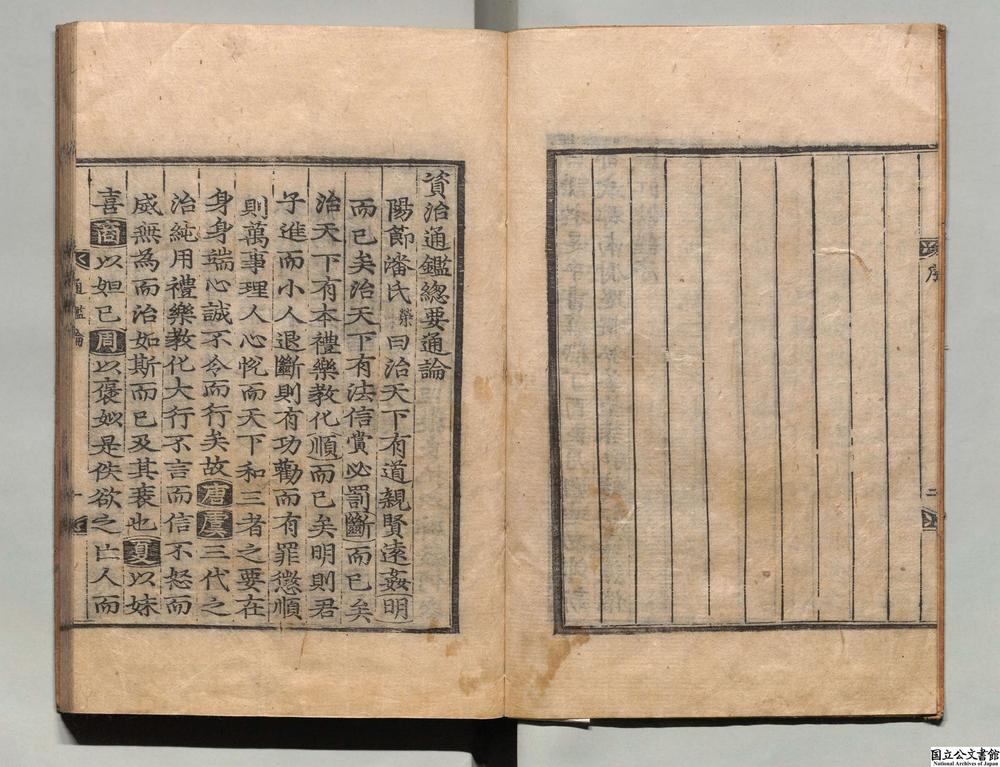 序
二
資治通鑑總要通論
陽節潘氏榮曰治天下有道親賢遠姦明
而已矣治天下有法信賞必罰斷而已矣
治天下有本禮樂教化順而已矣明則君
子進而小人退斷則有功勸而有罪懲順
則萬事理人心悅而天下和三者之要在
身身端心誠不令而行矣故唐虞三代之
治純用禮樂教化大行不言而信不怒而
威無為而治如斯而已及其衰也夏以妹
喜商以妲己周以褒姒是佚欲之亡人而
通鑑論
一
国立公文書館
National Archives of Japan